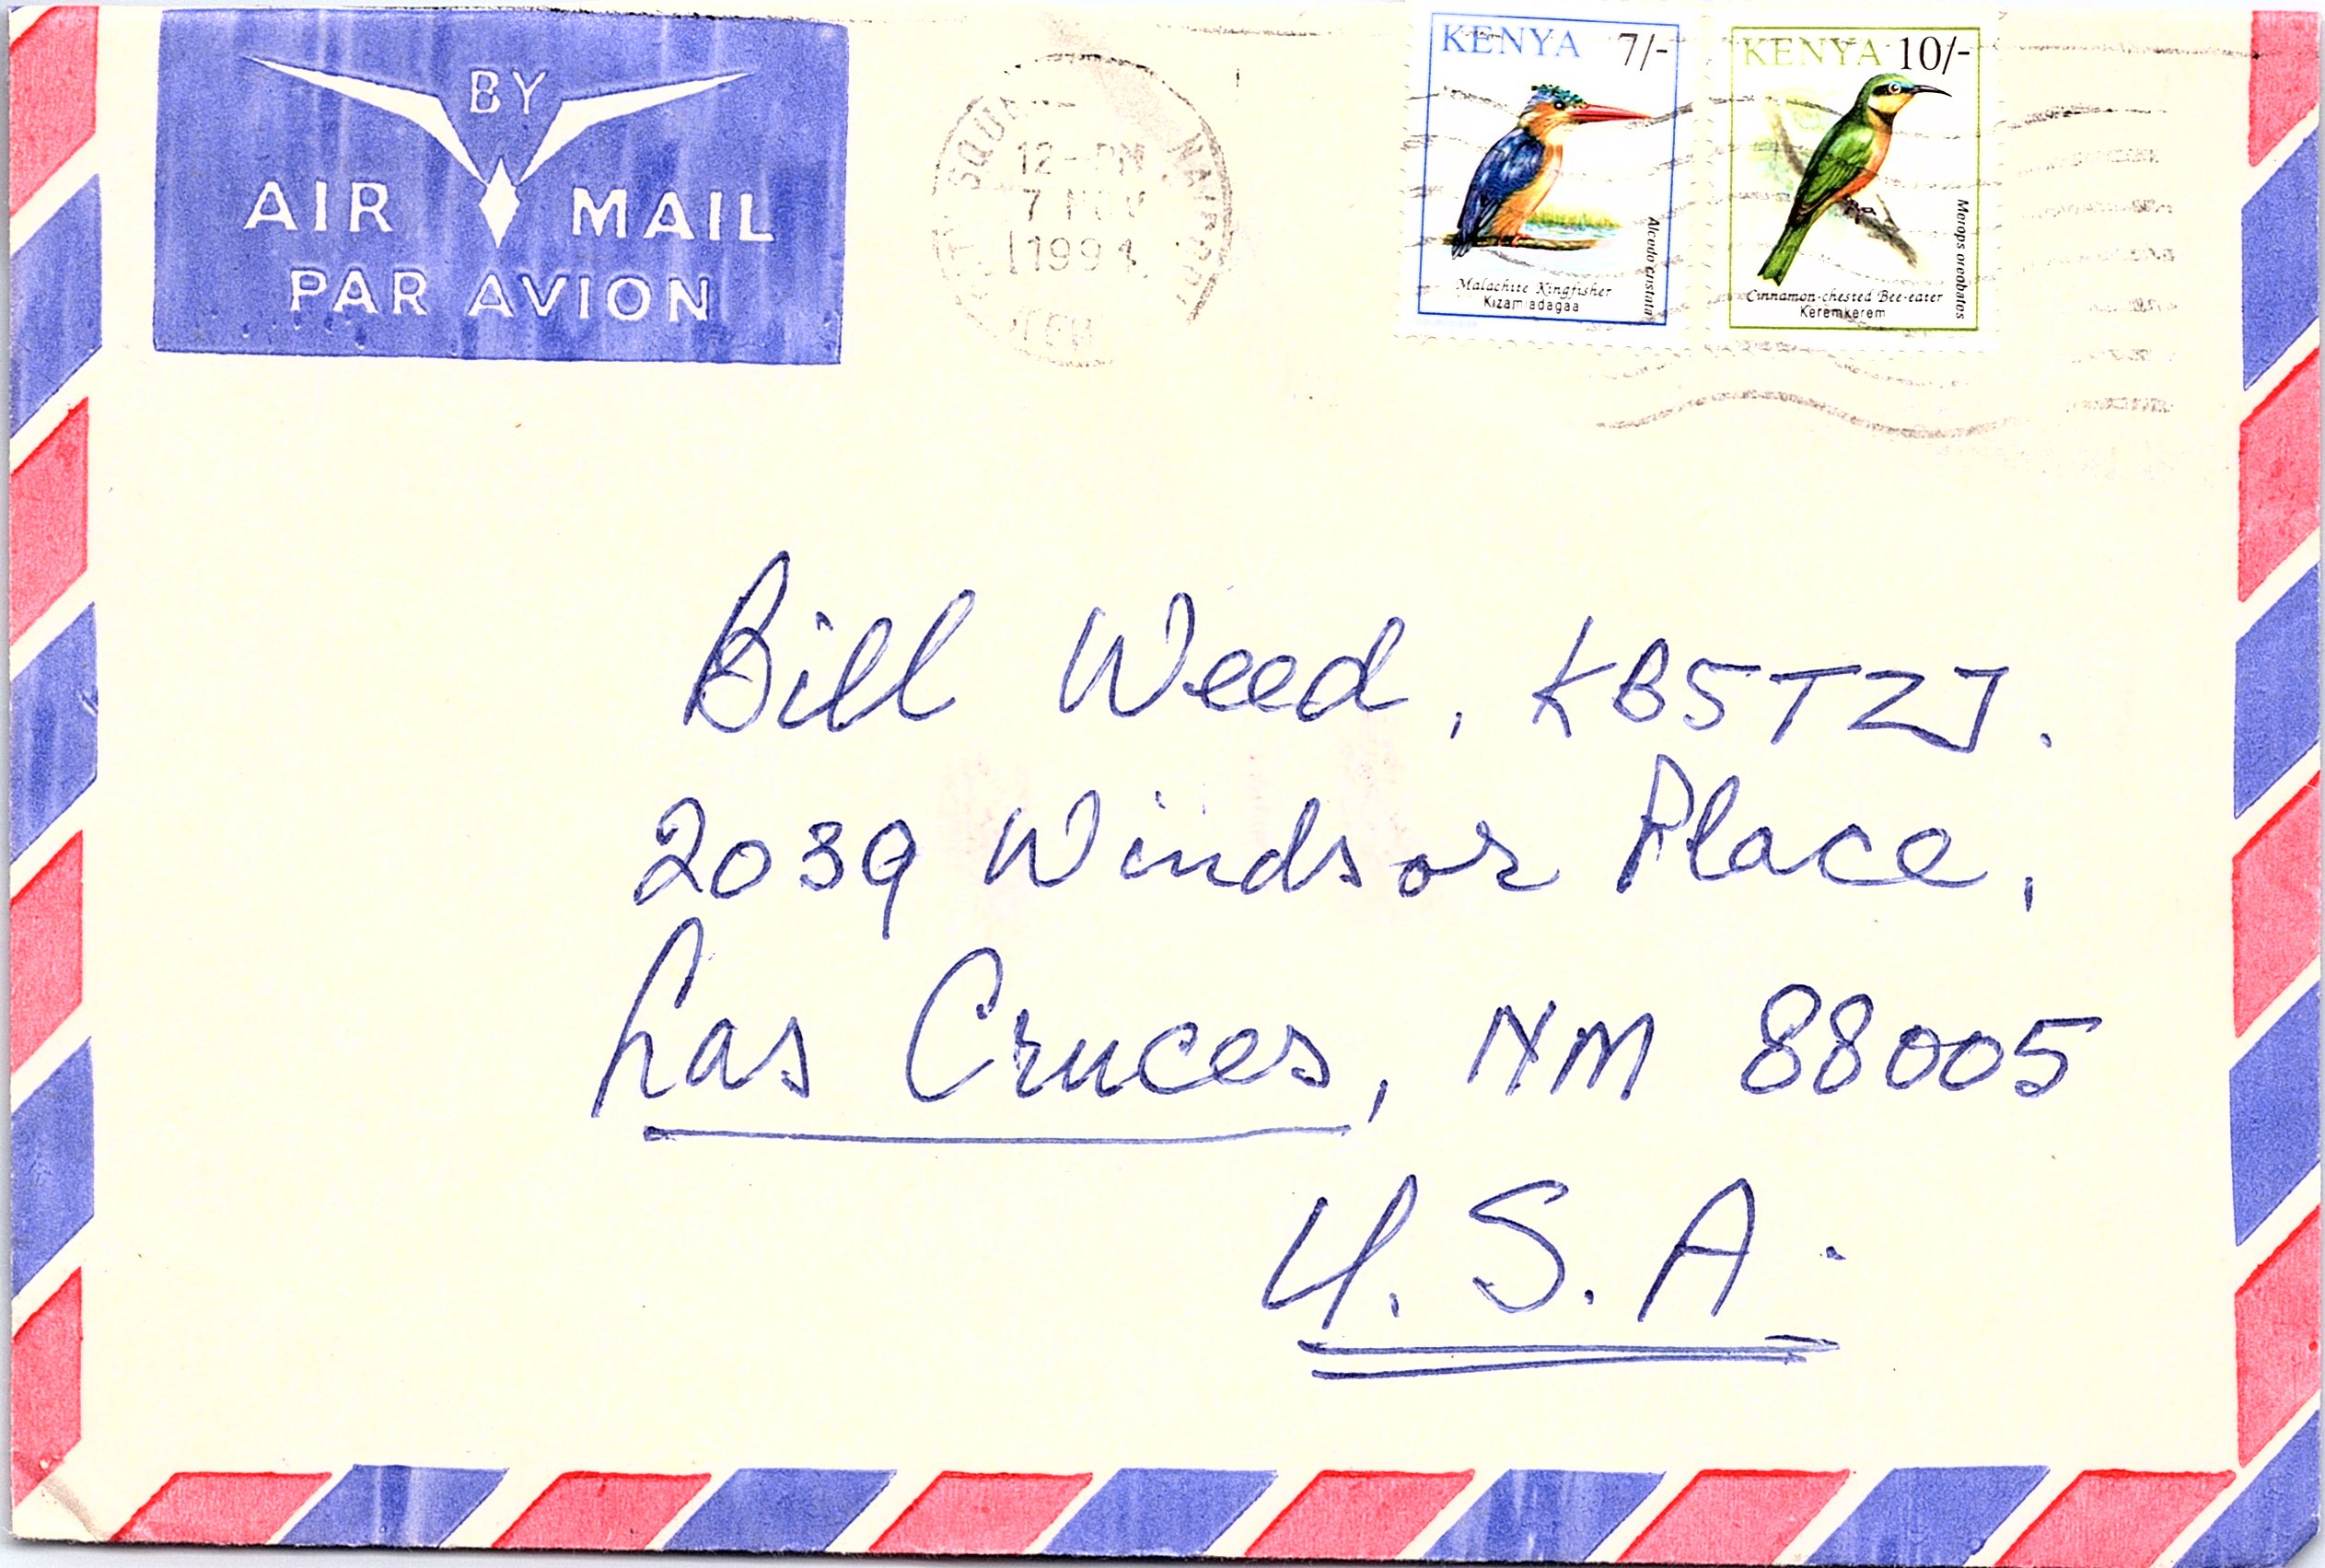 BY
AIR MAIL
PAR AVION
NAIROBI
12-PM
7 NOV
1994
KENYA 7/-
Malachite Kingfisher
Kizamiadagaa
Alcedo cristata
KENYA 10/-
Cinnamon-chested Bee-eater
Keremkerem
Merops oreobates
Bill Weed, KB5TZJ.
2039 Windsor Place,
Las Cruces, NM 88005
U.S.A.